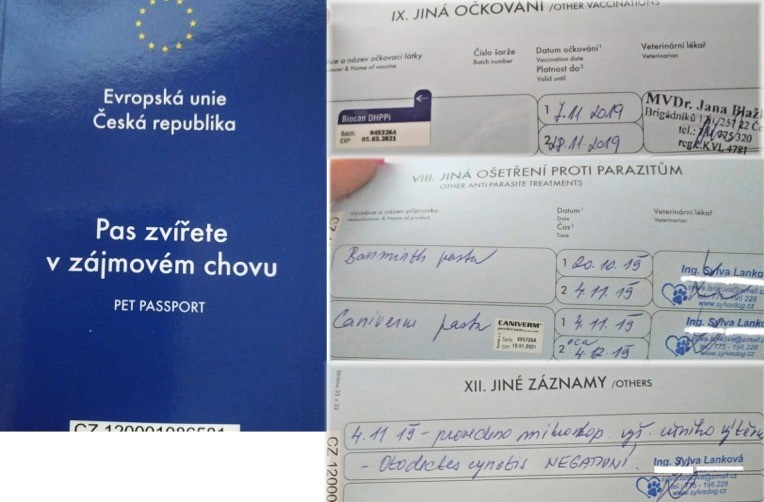 Evropská unie
Česká republika
Pas zvířete
v zájmovém chovu
PET PASSPORT
IX. JINÁ OČKOVÁNÍ /OTHER VACCINATIONS
a název očkovací látky
& Name of vaccine
Číslo šarže
Batch number
Datum očkování¹
Vaccination date
Platnost do²
Valid until
Veterinární lékař
Veterinarian
Biocan DHPPi
Batch: 045326A
EXP: 05.03.2021
1 7.11.2019
2 28.11.2019
MVDr. Jana
Brigádníků
tel.:
VIII. JINÁ OŠETŘENÍ PROTI PARAZITŮM
OTHER ANTI-PARASITE TREATMENTS
Výrobce a název přípravku
& Name of product
Datum¹
Date
Čas²
Time
Veterinární lékař
Veterinarian
Banminth pasta
1 20.10.19
2 4.11.19
Ing. Sylva Lankov
www.sylvadog.cz
Caniverm pasta
CANIVERM
1 4.11.19
2 cca 4.12.19
Ing. Sylva Lanko
tel.: 775 - 198 228
www.sylvadog.cz
XII. JINÉ ZÁZNAMY /OTHERS
4.11.19 - provedeno mikroskop. vyš. ušního
- Otodectes cynotis NEGATIVNÍ!
Ing. Sylva Lanková
www.sylvadog.cz
CZ 12000